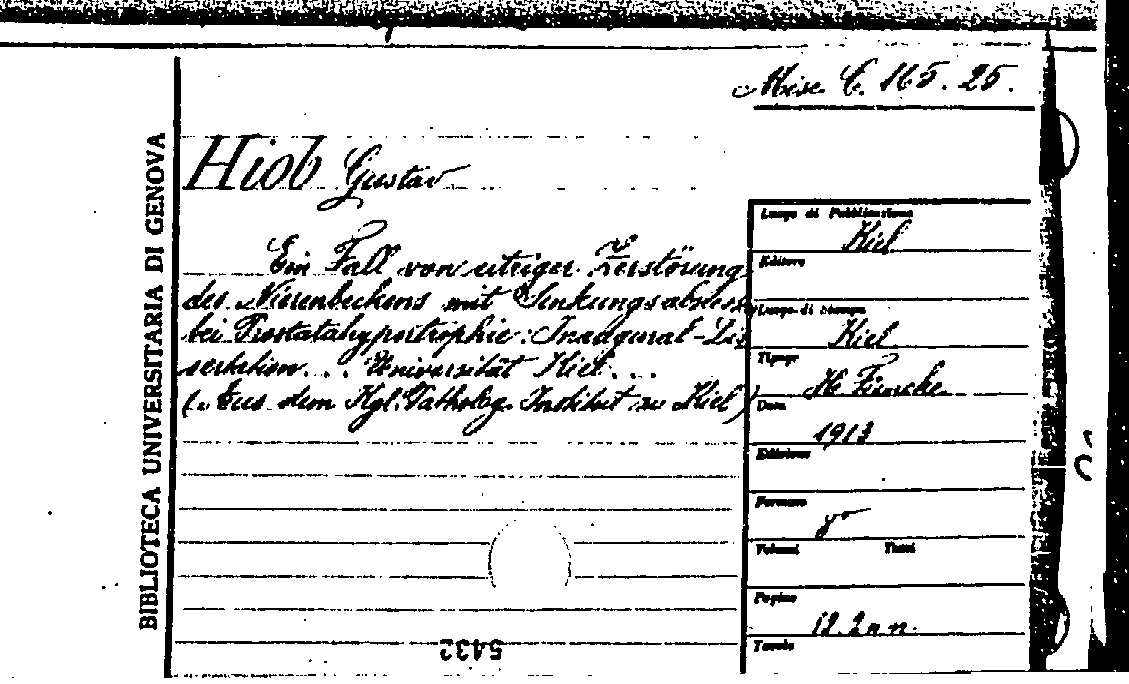 Misc C. 165. 25.
BIBLIOTECA UNIVERSITARIA DI GENOVA
Hiob Gustav
Ein Fall von eitriger Zerstörung
des Nierenbeckens mit Senkungsabscess
bei Prostatahypertrophie: Inaugural-Dis
sertation... Universität Kiel...
(Aus dem Kgl. Patholog. Institut zu Kiel)
Luogo di Pubblicazione
Kiel
Editore
Luogo di stampa
Kiel
Tipogr
H. Fiencke
Data
1913
Edizione
Formato
8°
Volumi Tomi
Pagine
12. 2 n n.
Tavole
5432